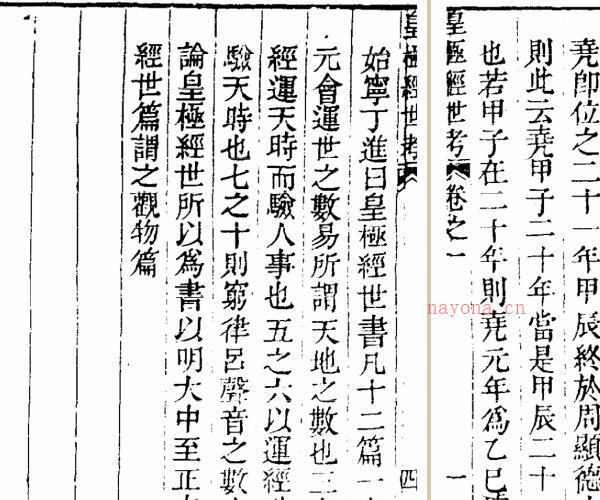 堯卽位之二十一年甲辰終於周顯德
則此云堯甲子二十年當是甲辰二十
也若甲子在二十年則堯元年爲乙巳
皇極經世考 卷之一 一
皇極經世考 四
始寧丁進曰皇極經世書凡十二篇一
元會運世之數易所謂天地之數也三
經運天時而驗人事也五之六以運經
驗天時也七之十則窮律呂聲音之數
論皇極經世所以爲書以明大中至正
經世篇謂之觀物篇
nayona.cn